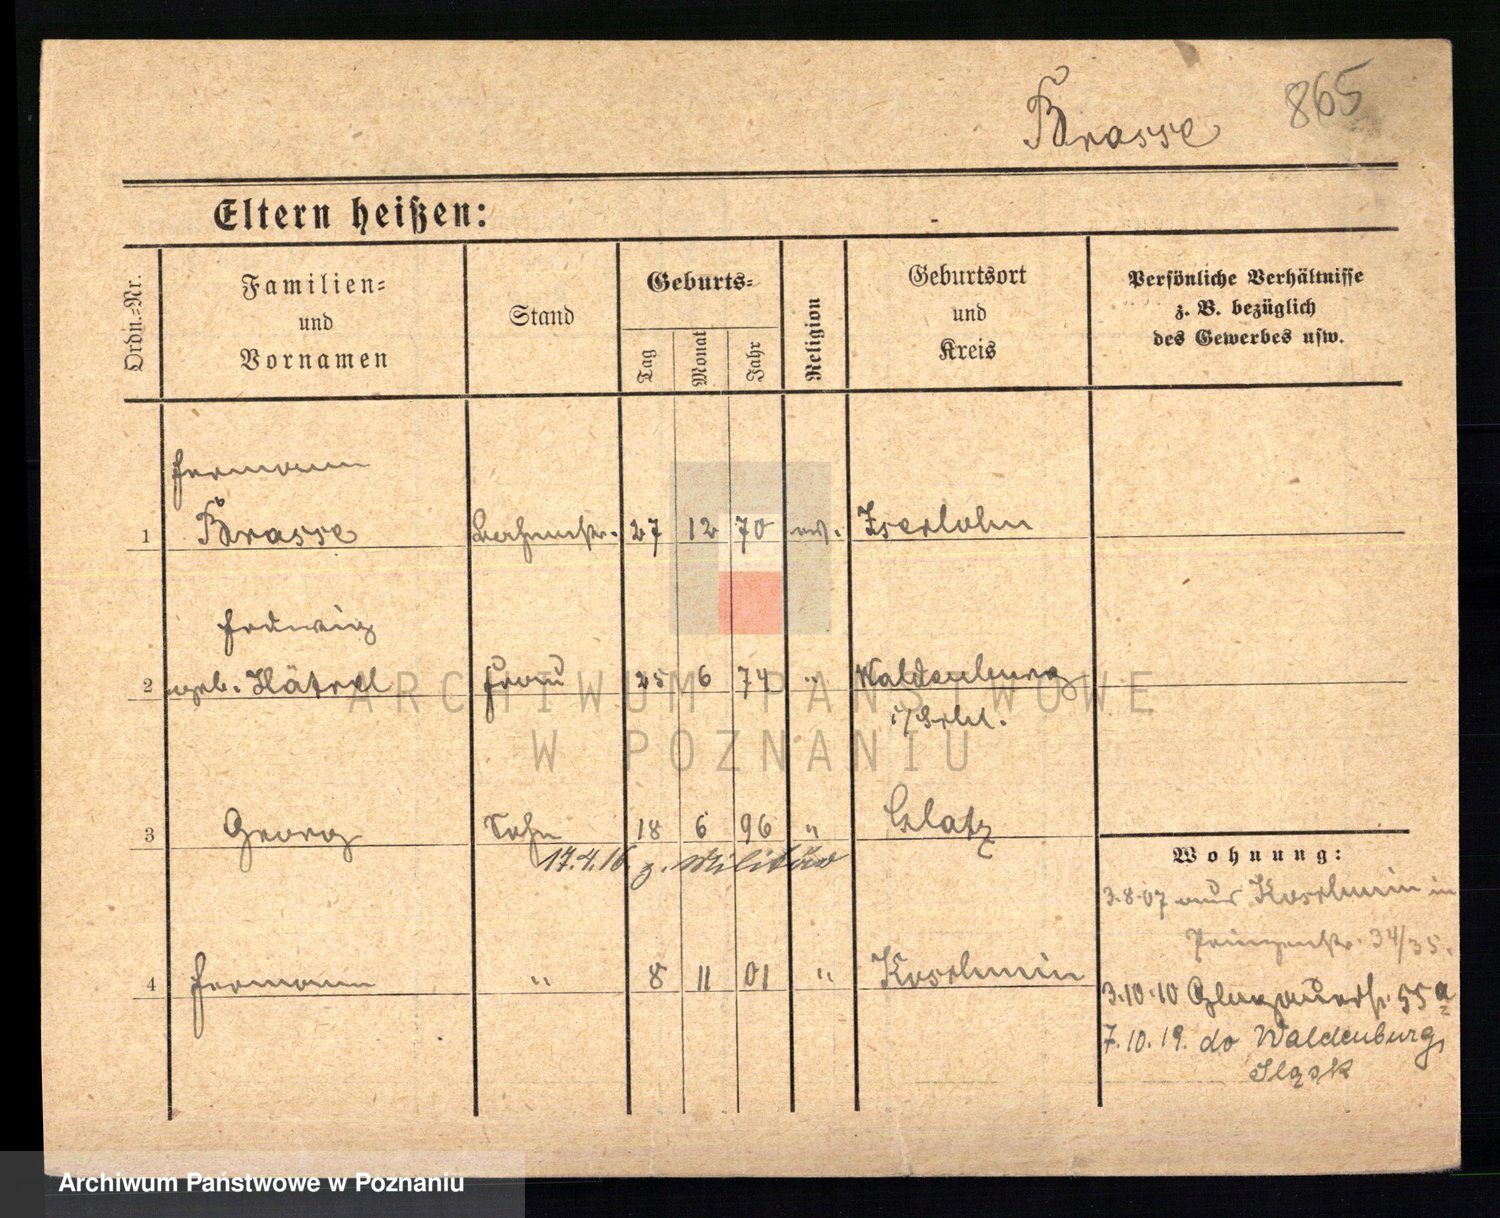 865
Brasse
Eltern heißen:
Ordn.-Nr.
Familien-
und
Vornamen
Stand
Geburts-
Tag
Monat
Jahr
Religion
Geburtsort
und
Kreis
Persönliche Verhältnisse
z. B. bezüglich
des Gewerbes usw.
Hermann
1 Brasse 27 12 70 ev. Iserlohn
Hedwig
2 geb. Frau 25 6 74 " Waldenburg
i/Schl.
3 Georg Sohn 18 6 96 " Glatz
17.4.16 z. Militär
Wohnung:
3.8.07 aus Koschmin in
Prinzenstr. 34/35.
4 Hermann " 8 11 01 " Koschmin
3.10.10 Glogauerstr. 55a
7.10.19. do Waldenburg,
Sląsk
ARCHIWUM PAŃSTWOWE
W POZNANIU
Archiwum Państwowe w Poznaniu